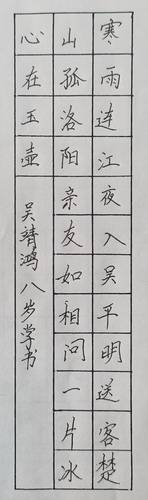 寒雨连江夜入吴平明送客楚
山孤洛阳亲友如相问一片冰
心在玉壶 吴靖鸿八岁学书